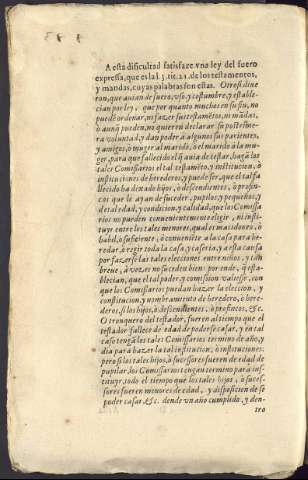 A esta dificultad satisfaze vna ley del fuero
expressa, que es la l. 3. tit. 21. de los testamentos,
y mandas, cuyas palabras son estas. Otrosi dixe
ron, que auian de fuero, vso, y costumbre, y estable-
cian por ley, que por quanto muchos en su fin, no
puedē ordenar, ni fazer sus testamētos, ni mādas,
ò aunq̄ pueden, no quieren declarar su postrime-
ra voluntad, y dan poder à algunos sus parientes,
y amigos, ò muger al marido, ò el marido à la mu-
ger, para que fallecido el q̄ auia de testar, hagā los
tales Comissarios el tal testamēto, y institucion, ò
instituciones de herederos, y puede ser, que el tal fa
llecido ha dexado hijos, ò descendientes, ò profin-
cos que le ayan de suceder, pupilos, y pequeños,
de tal edad, y condicion, y calidad, que los Comissa-
rios no pueden conuenientemente elegir, ni insti-
tuyr entre los tales menores, qual es mas idoneo, ò
habil, ò suficiente, ò conueniēte a la casa para he-
redar, ò regir toda la casa, y caseria, y a esta causa
por fazerse las tales elecciones entre niños, y tan
breue, à vezes no suceden bien: por ende, q̄ esta-
blecian, que el tal poder, y comission valiesse, con
que los Comissarios puedan hazer la eleccion, y
constitucion, y nombramiento de heredero, ò here-
deros, si los hijos, ò descendientes, ò profincos, &c.
O tronquero del testador, fueren al tiempo que el
testador fallece de edad de poderse casar, y en tal
caso tengā los tales Comissarios termino de año, y
dia para hazer la tal institucion, ò instituciones:
pero si los tales hijos, ò sucessores fueren de edad de
pupilar, los Comissarios tengan termino para ins-
tituyr, todo el tiempo que los tales hijos, ò suces-
sores fueren menores de edad, y disposicion de se
poder casar, &c. dende vn año cumplido, y den-
tro